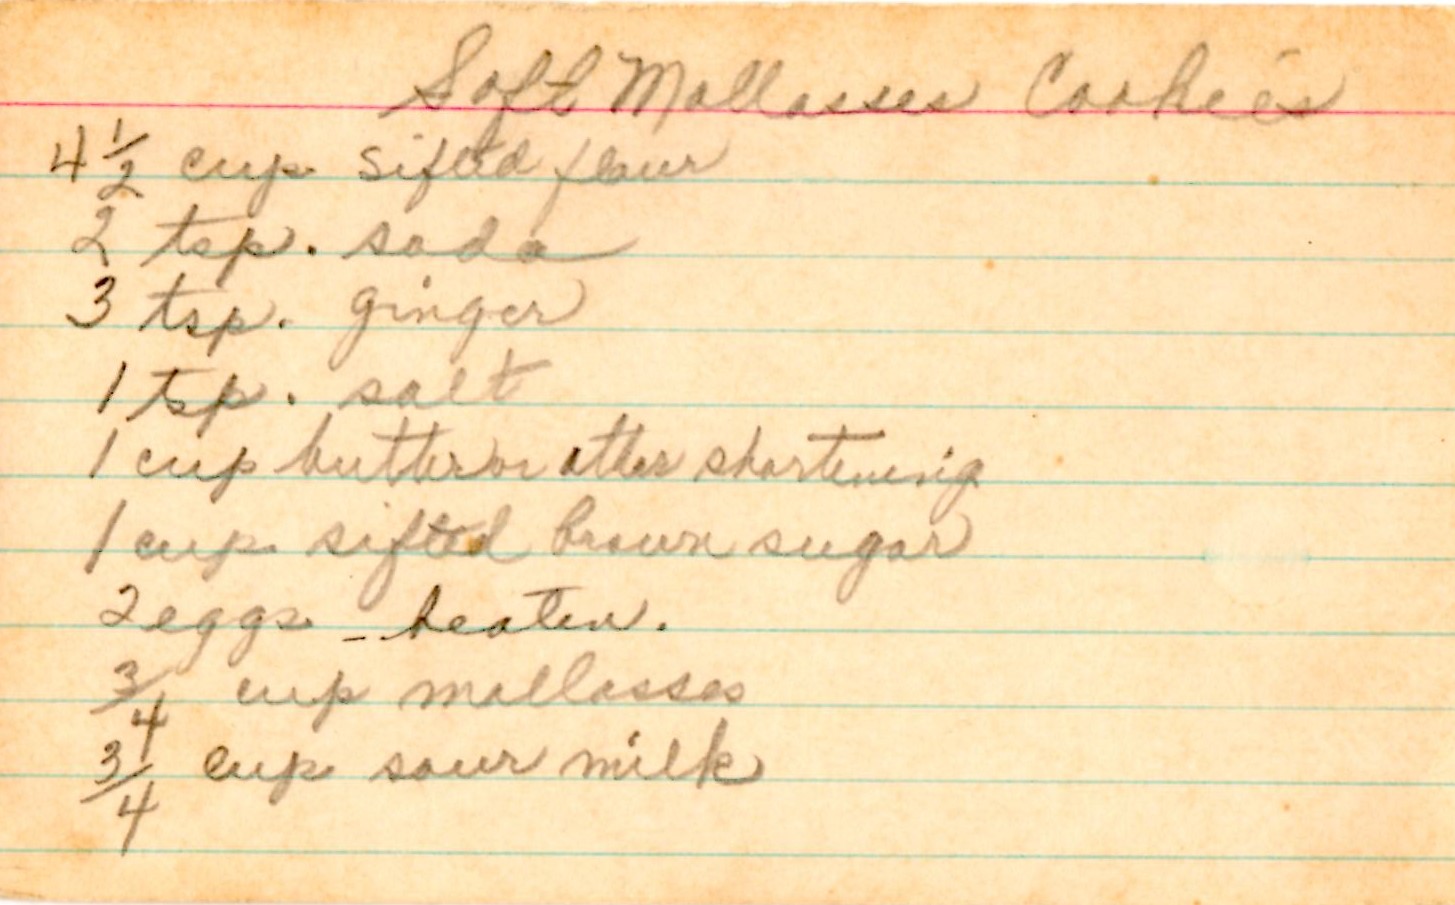 Soft Mollasses Cookies
4 1/2 cup sifted flour
2 tsp. soda
3 tsp. ginger
1 tsp. salt
1 cup butter or other shortening
1 cup sifted brown sugar
2 eggs - beaten.
3/4 cup mollasses
3/4 cup sour milk